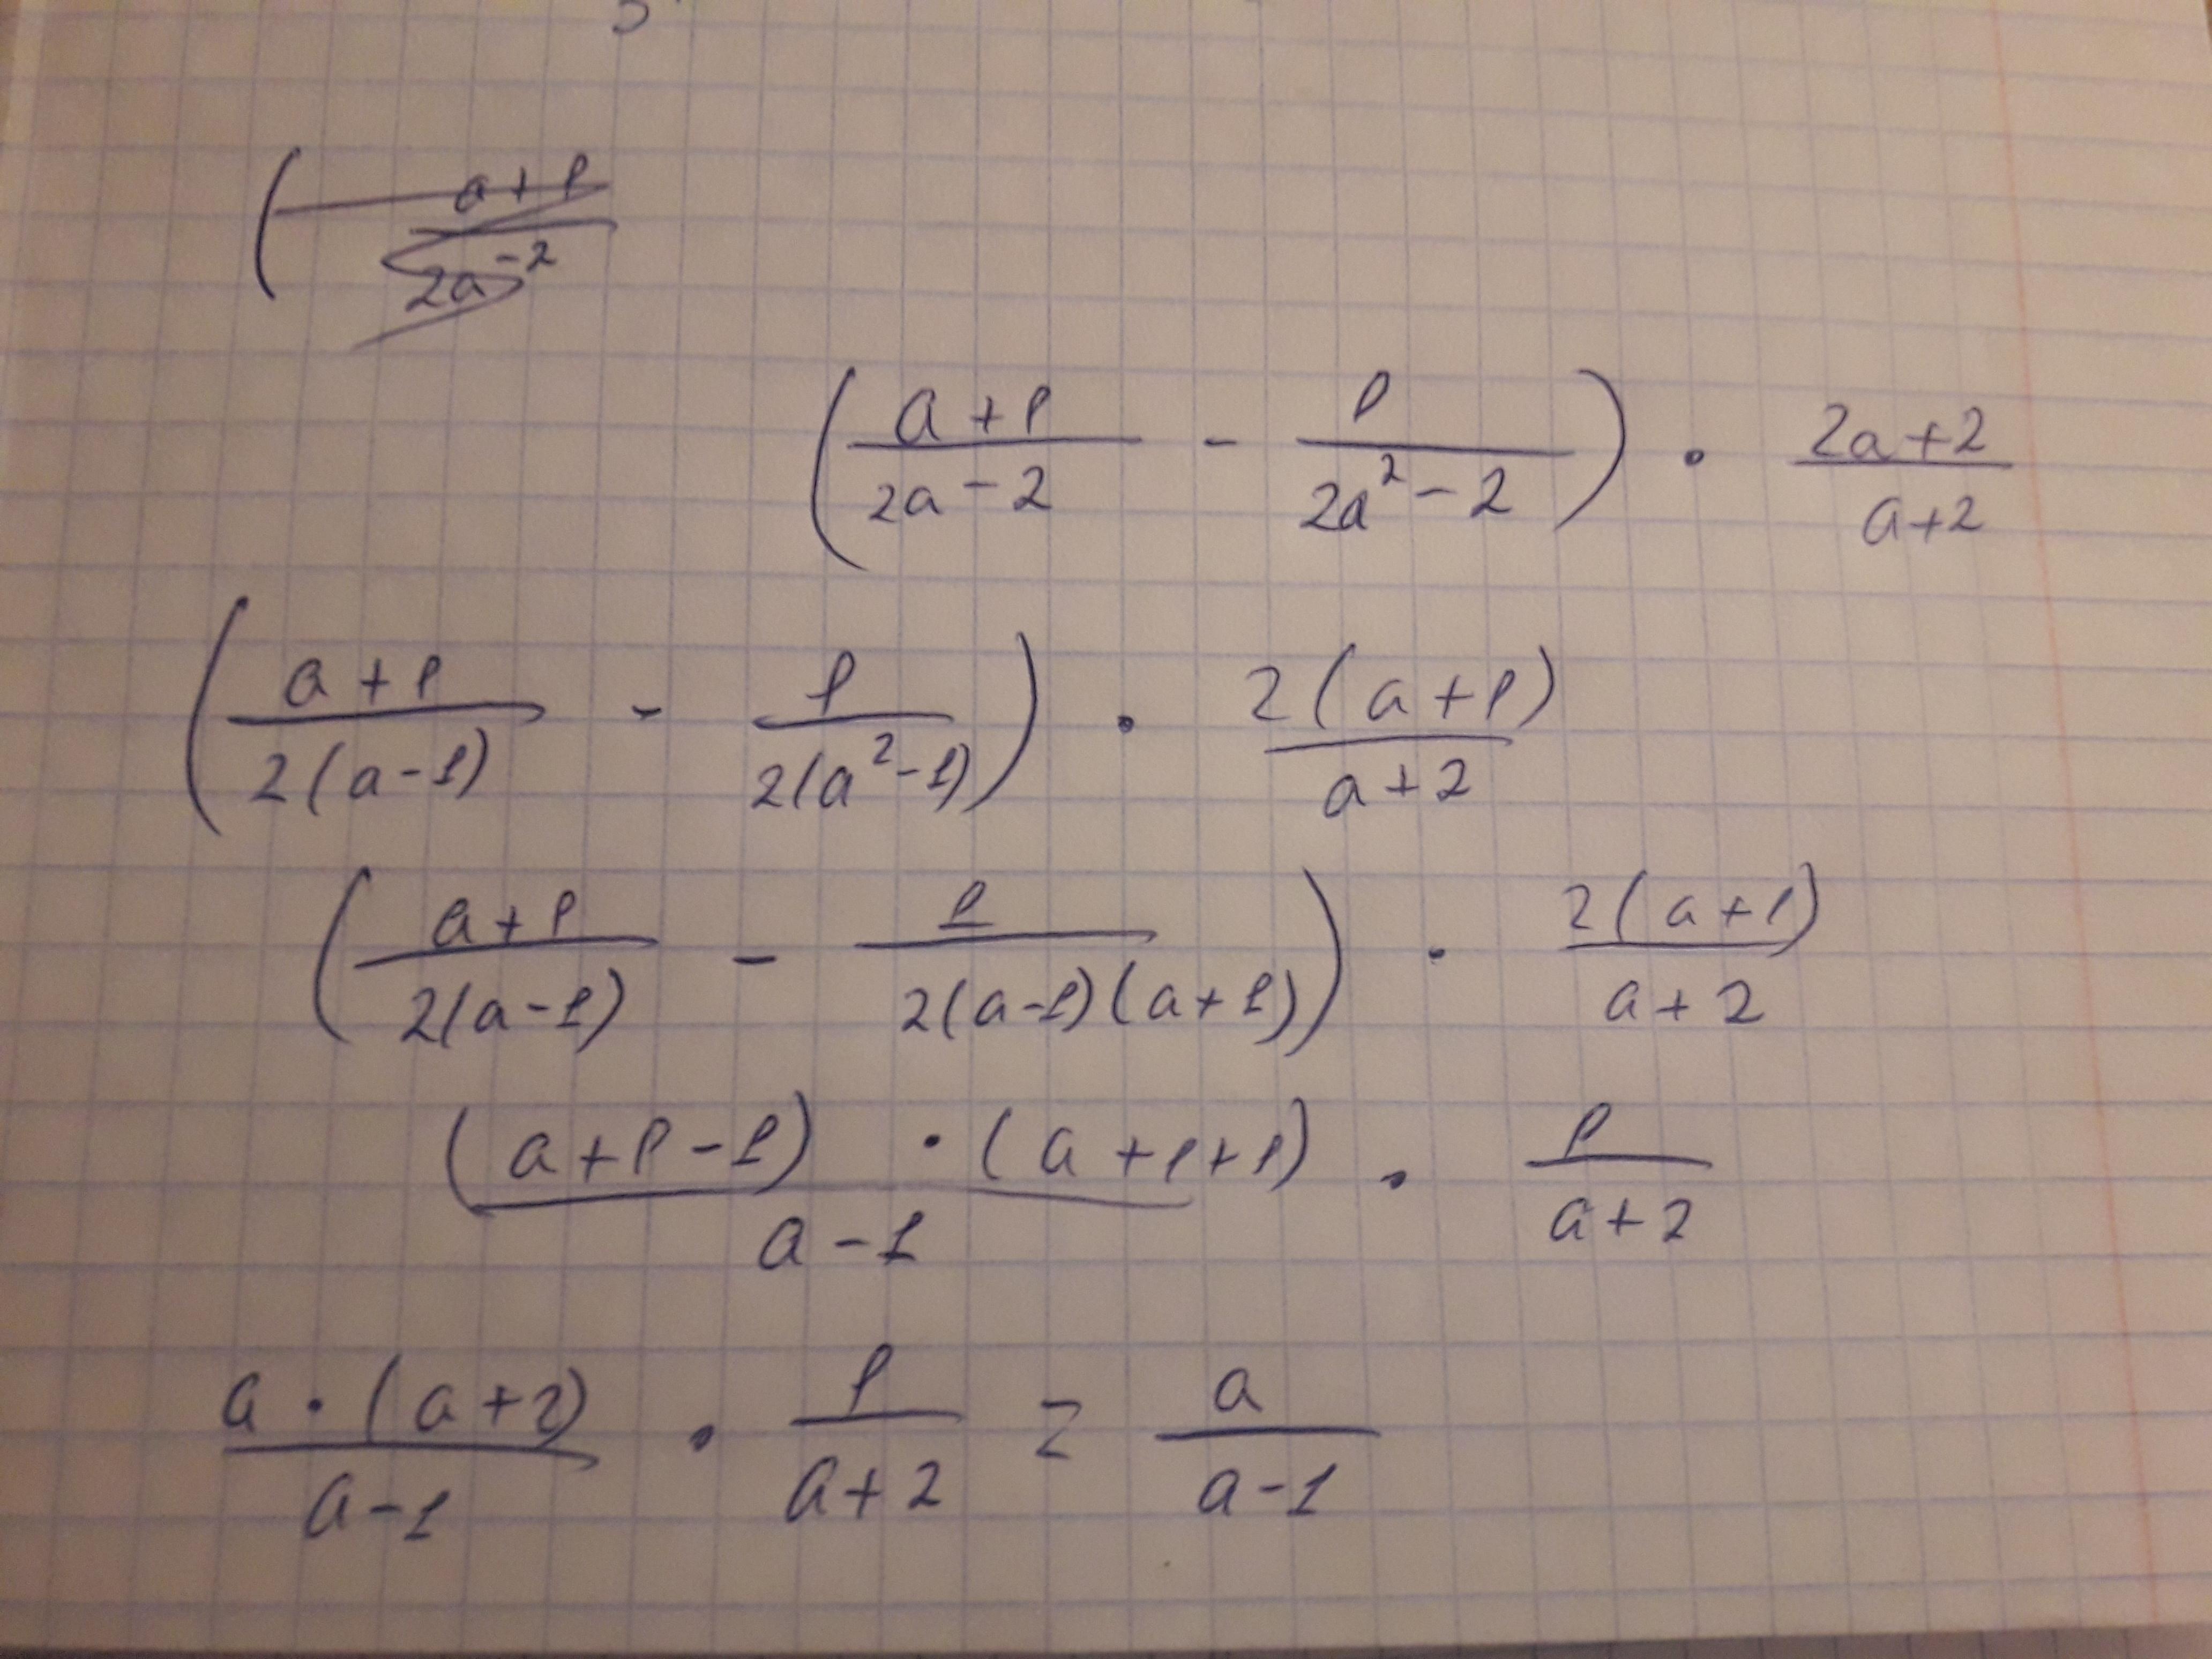 ( a+1 / 2a-2
( (a+1)/(2a-2) - 1/(2a²-2) ) · (2a+2)/(a+2)
( (a+1)/(2(a-1)) - 1/(2(a²-1)) ) · 2(a+1)/(a+2)
( (a+1)/(2(a-1)) - 1/(2(a-1)(a+1)) ) · 2(a+1)/(a+2)
(a+1-1)·(a+1+1)/(a-1) · 1/(a+2)
a·(a+2)/(a-1) · 1/(a+2) = a/(a-1)